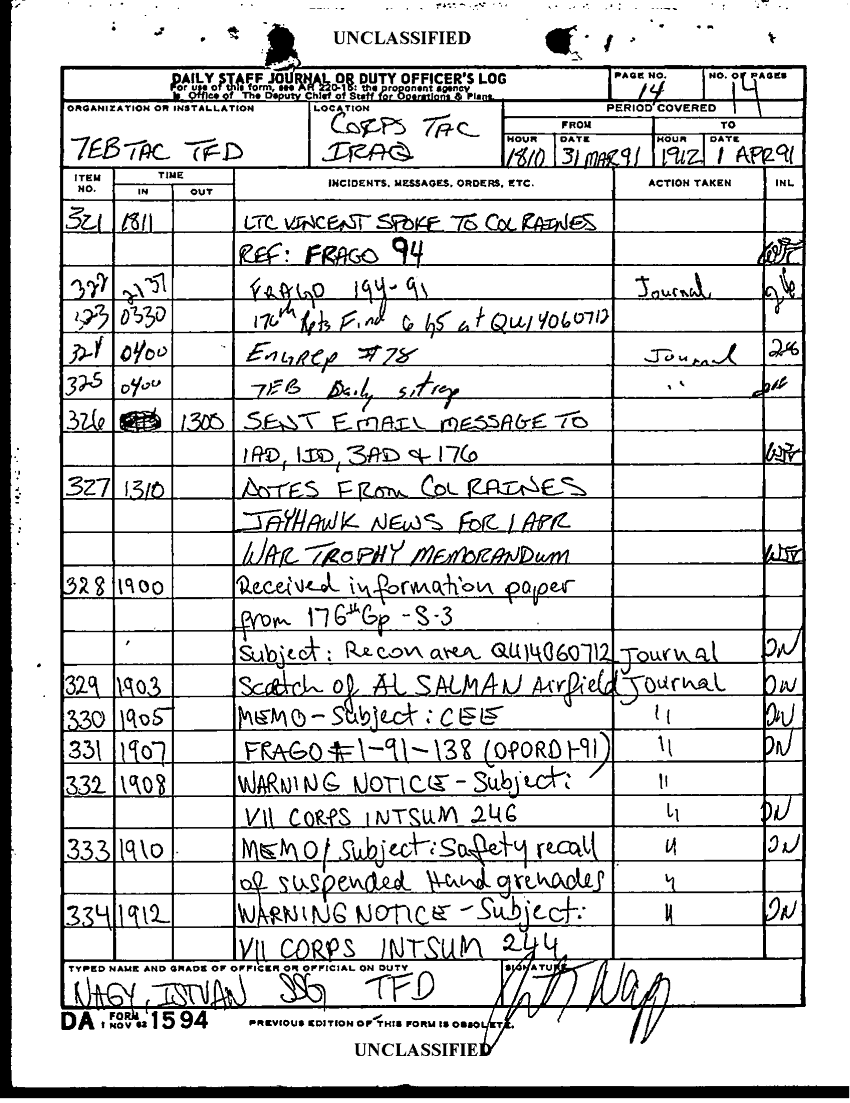 UNCLASSIFIED
DAILY STAFF JOURNAL OR DUTY OFFICER'S LOG
For use of this form, see AR 220-15; the proponent agency
is Office of The Deputy Chief of Staff for Operations & Plans.
PAGE NO.
14
NO. OF PAGES
14
ORGANIZATION OR INSTALLATION
7EB TAC TFD
LOCATION
CORPS TAC
IRAQ
PERIOD COVERED
FROM
TO
HOUR
1810
DATE
31 MAR 91
HOUR
1912
DATE
1 APR 91
ITEM NO.
TIME
IN
OUT
INCIDENTS, MESSAGES, ORDERS, ETC.
ACTION TAKEN
INL
321 1811 LTC VINCENT SPOKE TO COL RAINES
REF: FRAGO 94
322 2137 FRAGO 194-91 Journal
323 0330 176th Rpts Find 6 b5 at QU14060712
324 0400 Engrep #78 Journal
325 0400 7EB Daily sitrep "
326 1300 SENT EMAIL MESSAGE TO
1AD, 1ID, 3AD & 176 WJV
327 1310 NOTES FROM COL RAINES
JAYHAWK NEWS FOR 1 APR
WAR TROPHY MEMORANDUM WJV
328 1900 Received information paper
from 176th Gp - S-3
Subject: Recon area QU14060712 Journal IN
329 1903 Scatch of AL SALMAN Airfield Journal IN
330 1905 MEMO - Subject: CEE " IN
331 1907 FRAGO #1-91-138 (OPORD 1-91) " IN
332 1908 WARNING NOTICE - Subject: "
VII CORPS INTSUM 246 " IN
333 1910 MEMO / Subject: Safety recall " IN
of suspended Hand grenades "
334 1912 WARNING NOTICE - Subject: " IN
VII CORPS INTSUM 244
TYPED NAME AND GRADE OF OFFICER OR OFFICIAL ON DUTY
NAGY, ISTVAN SSG TFD
SIGNATURE
DA FORM 1 NOV 62 1594
PREVIOUS EDITION OF THIS FORM IS OBSOLETE.
UNCLASSIFIED